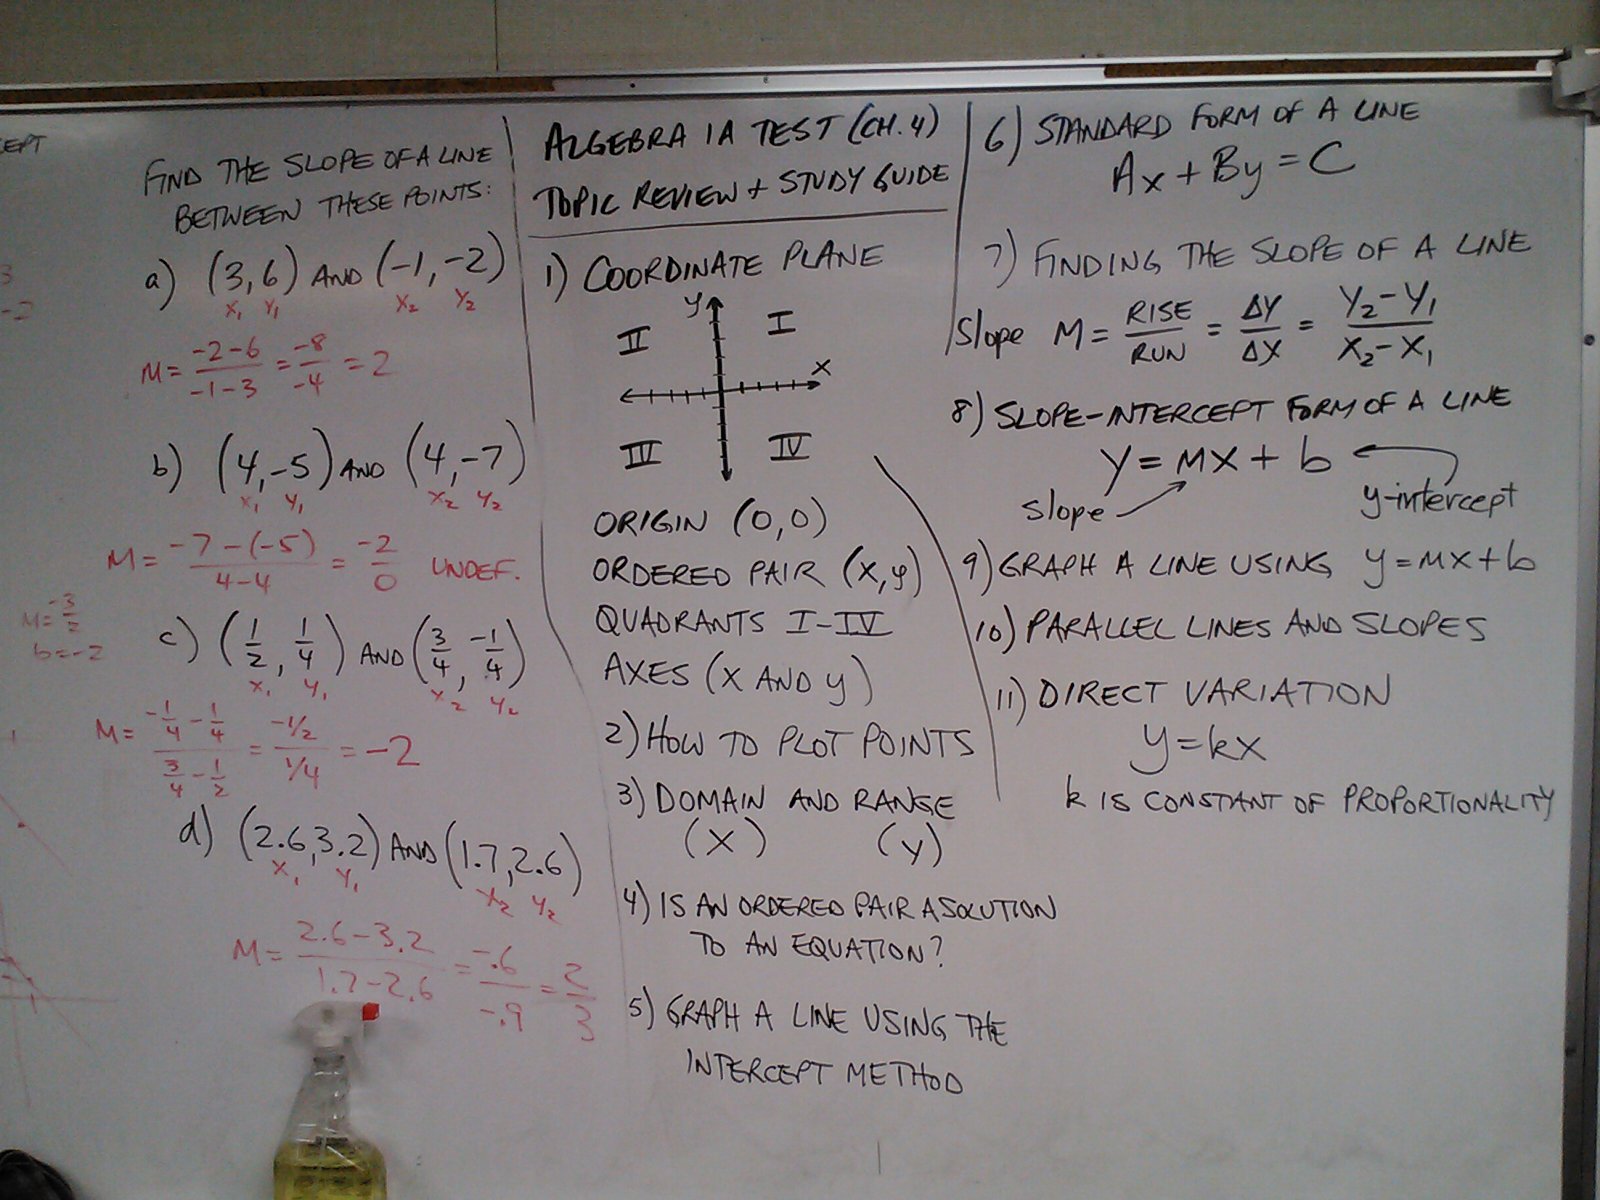 CEPT
3
-2
M = -3/2
b = -2
FIND THE SLOPE OF A LINE
BETWEEN THESE POINTS:
a) (3, 6) AND (-1, -2)
X₁ Y₁ X₂ Y₂
M = -2-6 / -1-3 = -8 / -4 = 2
b) (4, -5) AND (4, -7)
X₁ Y₁ X₂ Y₂
M = -7-(-5) / 4-4 = -2 / 0 UNDEF.
c) (1/2, 1/4) AND (3/4, -1/4)
X₁ Y₁ X₂ Y₂
M = -1/4 - 1/4 / 3/4 - 1/2 = -1/2 / 1/4 = -2
d) (2.6, 3.2) AND (1.7, 2.6)
X₁ Y₁ X₂ Y₂
M = 2.6-3.2 / 1.7-2.6 = -.6 / -.9 = 2/3
ALGEBRA 1A TEST (CH. 4)
TOPIC REVIEW + STUDY GUIDE
1) COORDINATE PLANE
y
II I
x
III IV
ORIGIN (0,0)
ORDERED PAIR (x,y)
QUADRANTS I-IV
AXES (X AND y)
2) HOW TO PLOT POINTS
3) DOMAIN AND RANGE
(X) (y)
4) IS AN ORDERED PAIR A SOLUTION
TO AN EQUATION?
5) GRAPH A LINE USING THE
INTERCEPT METHOD
6) STANDARD FORM OF A LINE
Ax + By = C
7) FINDING THE SLOPE OF A LINE
Slope M = RISE / RUN = ΔY / ΔX = Y₂-Y₁ / X₂-X₁
8) SLOPE-INTERCEPT FORM OF A LINE
y = mx + b
slope y-intercept
9) GRAPH A LINE USING y = mx + b
10) PARALLEL LINES AND SLOPES
11) DIRECT VARIATION
y = kx
k IS CONSTANT OF PROPORTIONALITY